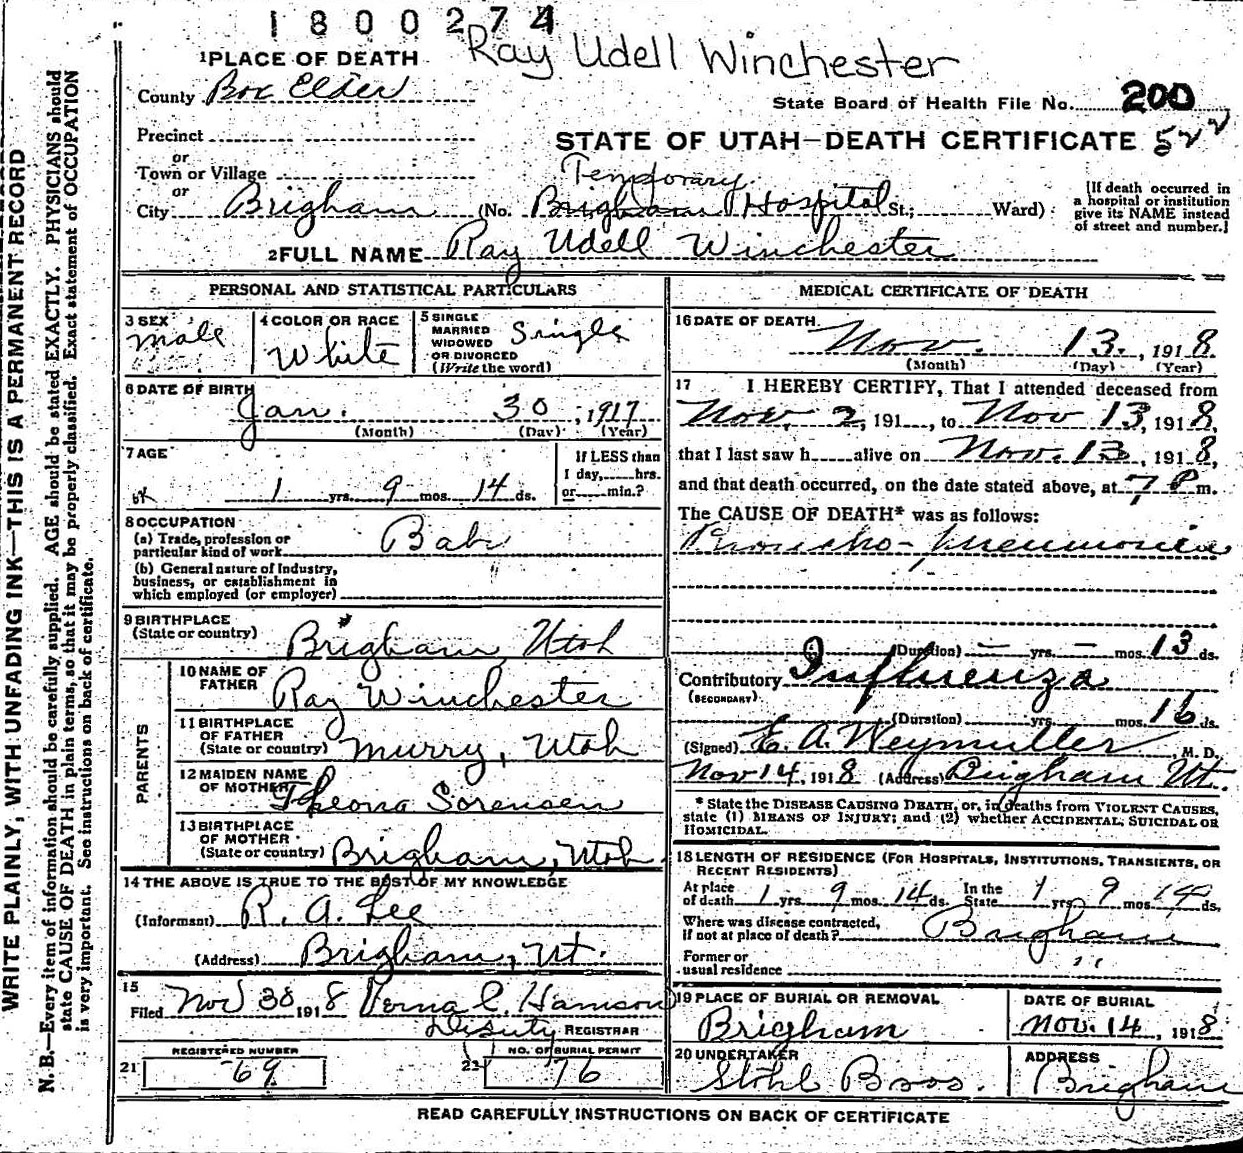 1800274
Ray Udell Winchester
1 PLACE OF DEATH
County Box Elder
State Board of Health File No. 200
Precinct
STATE OF UTAH—DEATH CERTIFICATE 522
or
Town or Village
Temporary
or
City Brigham (No. Brigham Hospital St.; Ward)
[If death occurred in a hospital or institution give its NAME instead of street and number.]
2 FULL NAME Ray Udell Winchester
PERSONAL AND STATISTICAL PARTICULARS
3 SEX Male
4 COLOR OR RACE White
5 SINGLE MARRIED WIDOWED OR DIVORCED (Write the word) Single
6 DATE OF BIRTH
Jan. 30, 1917
(Month) (Day) (Year)
7 AGE
1 yrs. 9 mos. 14 ds.
If LESS than 1 day, hrs. or min.?
8 OCCUPATION
(a) Trade, profession or particular kind of work Babe
(b) General nature of Industry, business, or establishment in which employed (or employer)
9 BIRTHPLACE
(State or country) Brigham Utah
PARENTS
10 NAME OF FATHER Ray Winchester
11 BIRTHPLACE OF FATHER (State or country) Murry, Utah
12 MAIDEN NAME OF MOTHER Theona Sorensen
13 BIRTHPLACE OF MOTHER (State or country) Brigham, Utah
14 THE ABOVE IS TRUE TO THE BEST OF MY KNOWLEDGE
(Informant) R. A. Lee
(Address) Brigham, Ut.
15
Filed Nov 30 1918 Verna C. Hamson
Deputy REGISTRAR
21 REGISTERED NUMBER 69
22 NO. OF BURIAL PERMIT 76
MEDICAL CERTIFICATE OF DEATH
16 DATE OF DEATH
Nov. 13, 1918.
(Month) (Day) (Year)
17 I HEREBY CERTIFY, That I attended deceased from
Nov. 2, 191, to Nov 13, 1918,
that I last saw h alive on Nov. 13, 1918,
and that death occurred, on the date stated above, at 7 P m.
The CAUSE OF DEATH* was as follows:
Broncho-pneumonia
(Duration) — yrs. — mos. 13 ds.
Contributory Influenza
(SECONDARY)
(Duration) yrs. mos. 16 ds.
(Signed) E. A. Weymuller, M. D.
Nov 14, 1918 (Address) Brigham Ut.
* State the DISEASE CAUSING DEATH, or, in deaths from VIOLENT CAUSES,
state (1) MEANS OF INJURY; and (2) whether ACCIDENTAL, SUICIDAL OR
HOMICIDAL.
18 LENGTH OF RESIDENCE (FOR HOSPITALS, INSTITUTIONS, TRANSIENTS, OR
RECENT RESIDENTS)
At place of death 1 yrs. 9 mos. 14 ds. In the State 1 yrs. 9 mos. 14 ds.
Where was disease contracted, if not at place of death? Brigham
Former or usual residence ,,
19 PLACE OF BURIAL OR REMOVAL
Brigham
DATE OF BURIAL
Nov. 14, 1918
20 UNDERTAKER
Stohl Bros.
ADDRESS
Brigham
READ CAREFULLY INSTRUCTIONS ON BACK OF CERTIFICATE
WRITE PLAINLY, WITH UNFADING INK—THIS IS A PERMANENT RECORD
N. B.—Every item of information should be carefully supplied. AGE should be stated EXACTLY. PHYSICIANS should
state CAUSE OF DEATH in plain terms, so that it may be properly classified. Exact statement of OCCUPATION
is very important. See instructions on back of certificate.